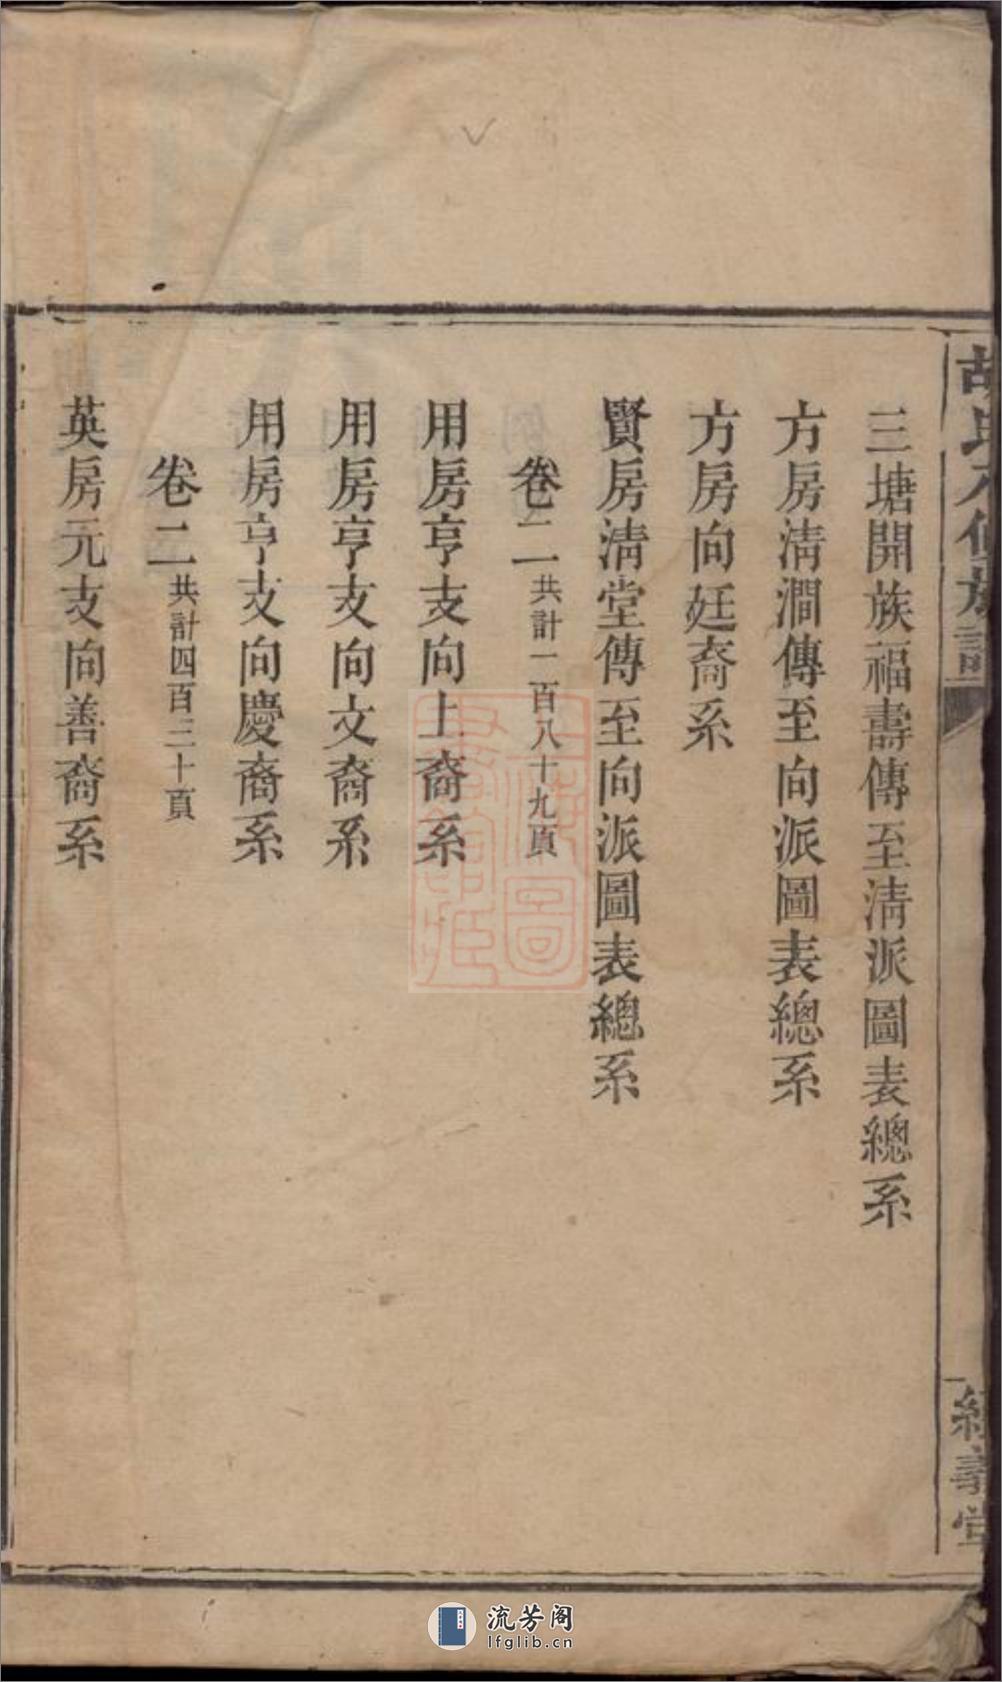 胡氏修族譜
三塘開族福壽傳至清派圖表總系
方房清澗傳至向派圖表總系
方房向廷裔系
賢房清堂傳至向派圖表總系
卷二 共計一百八十九頁
用房亨支向上裔系
用房亨支向文裔系
用房亨支向慶裔系
卷二 共計四百三十頁
英房元支向善裔系
經義堂
上海圖
書館藏
流芳阁
lfglib.cn